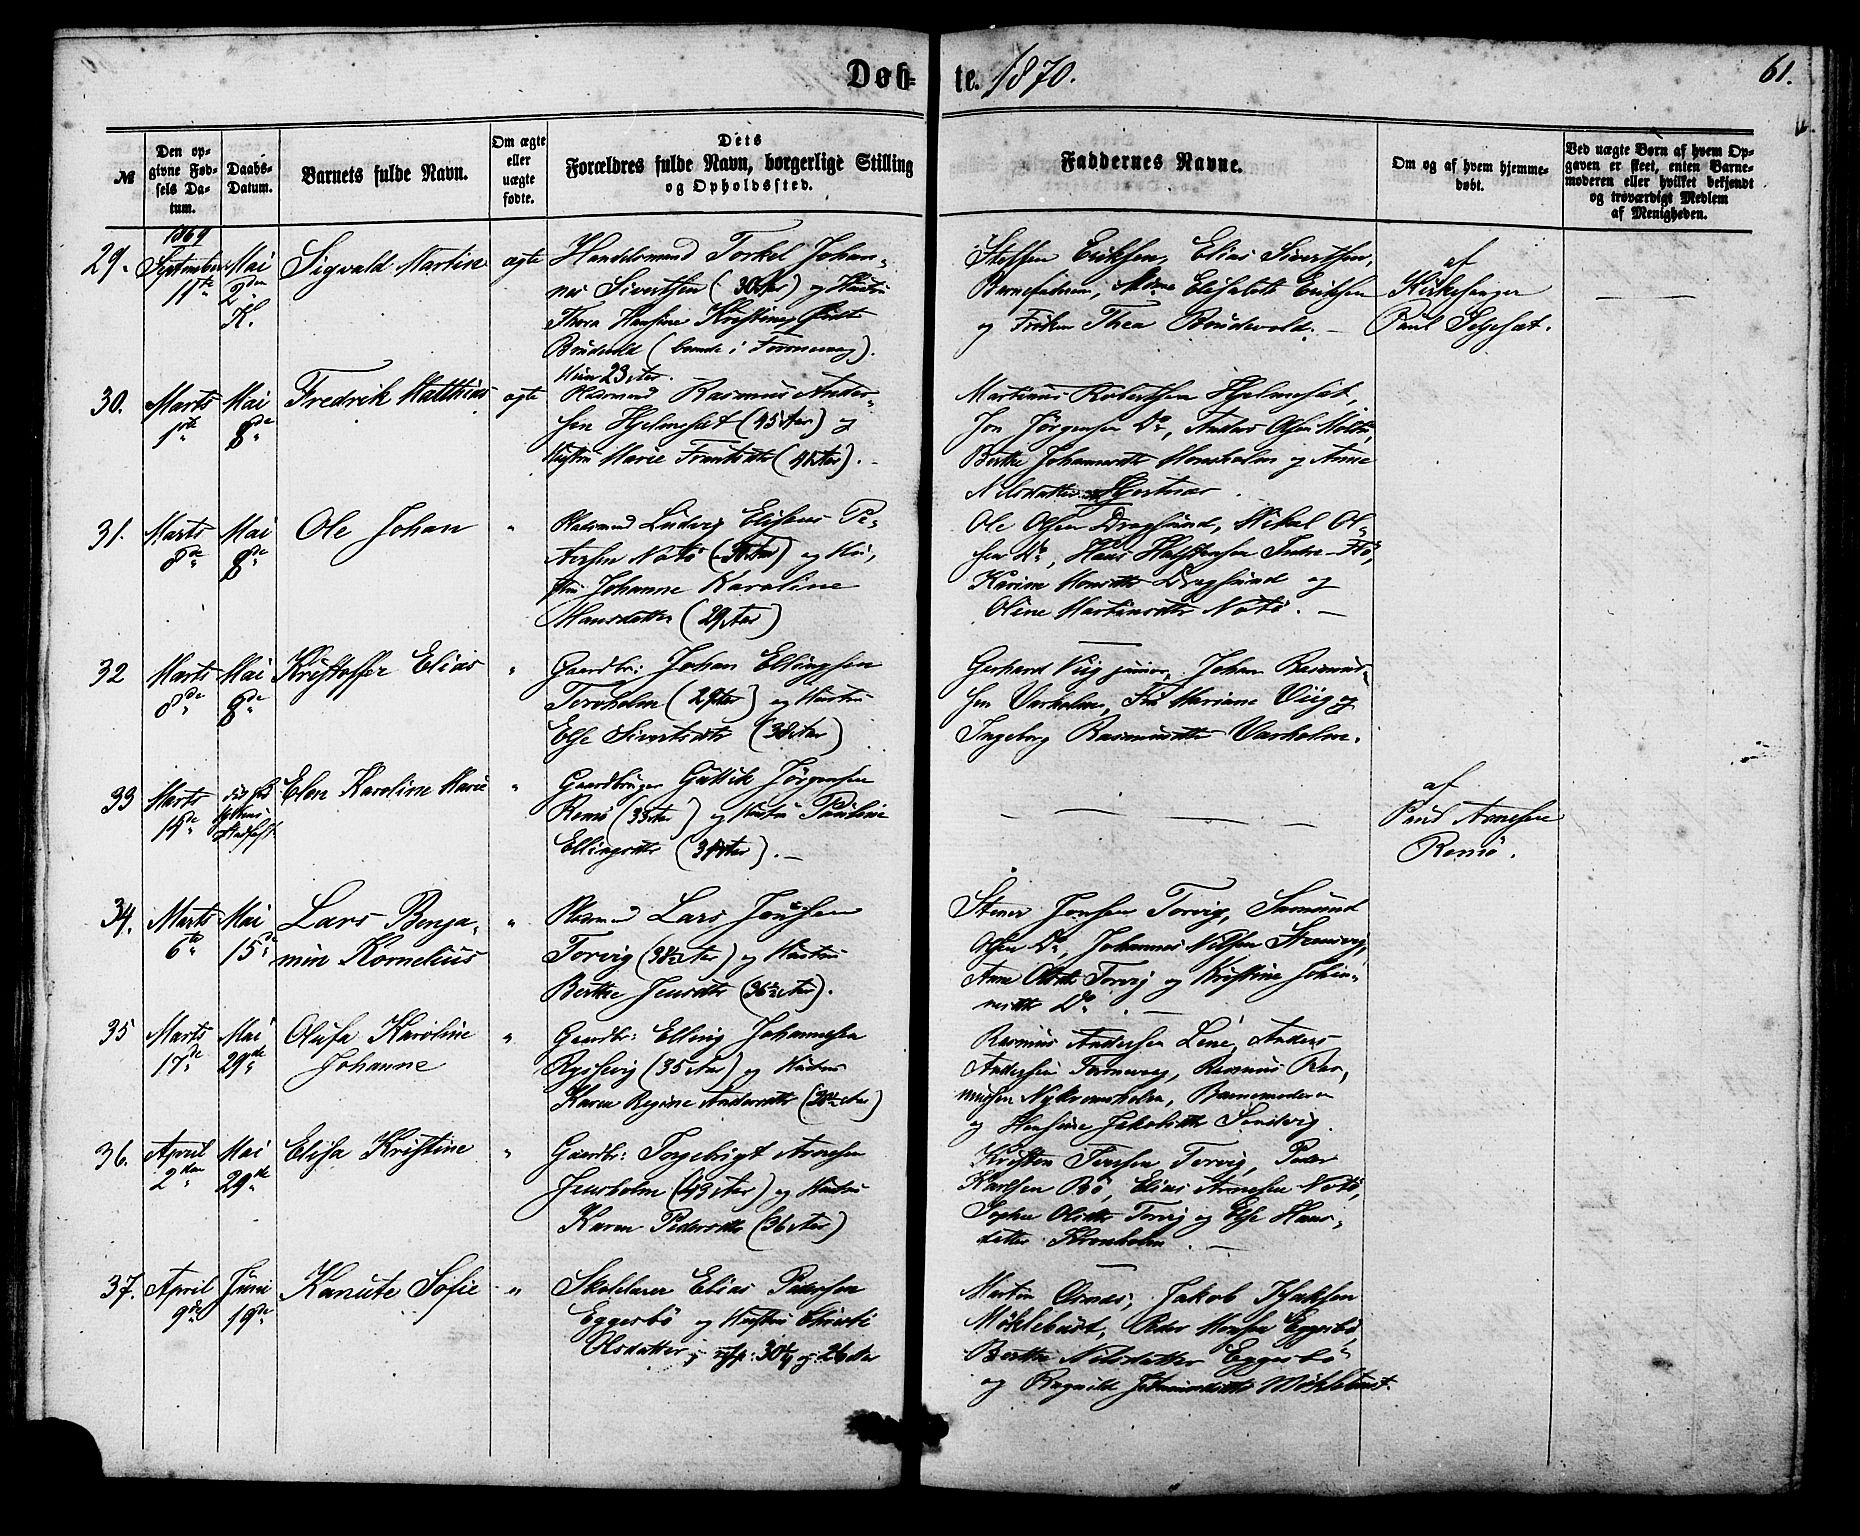 Døb-
te. 1870.
61.
№
Den opgivne Fødsels Datum.
Daabs-Datum.
Barnets fulde Navn.
Om ægte eller uægte fødte.
Dets
Forældres fulde Navn, borgerlige Stilling
og Opholdssted.
Faddernes Navne.
Om og af hvem hjemmedøbt.
Ved uægte Børn af hvem Opgaven er skeet, enten Barnemoderen eller hvilket bekjendt og troværdigt Medlem af Menigheden.
1869
29. September 11te Mai 2den K. Sigvald Martin ægte
Handelsmand Torkel Johan-
nes Sivertsen (30 Aar) og Hustru
Thora Hansine Kristine
Brudevold (boende i Fosnavaag).
Hun 23 Aar.
Steffen Eriksen, Elias Sivertsen,
Barnefaderen, Elisabet Eriksen
og Frøken Thea Brudevold. –
af
Kirkesanger
Paul Selgesæt.
30. Marts 1ste Mai 8de Fredrik Matthias ægte
Rasmus Ander-
sen Hjelmesæt (45 Aar) og
Hustru Marie
Martinus Robertsen Hjelmesæt,
Jon Jørgensen Do, Anders Olsen
Berthe Johannesdtr og Anne
Nilsdatter
31. Marts 8de Mai 8de Ole Johan "
Pladsmand Ludvig Elisæus Pe-
dersen Notø og Hu-
stru Johanne Karoline
Hansdatter (29 Aar)
Ole Olsen Dragsund, Mikal Ol-
sen Do, Hans Indre-
Karine Dragsund og
Oline Martinusdtr Notø. –
32 Marts 8de Mai 8de Kristoffer Elias "
Gaardbr: Johan Ellingsen
Torvholm (29 Aar) og Hustru
Else Sivertsdtr (38 Aar)
Gerhard Viig junior, Johan Rasmus-
sen Varholm, Fru Mariane Viig og
Ingeborg Rasmusdtr Varholm.
33 Marts Elen Karoline Marie "
Gaardbruger Guttik Jørgensen
Remø (33 Aar) og Hustru Pauline
Ellingsdtr (34 Aar). –
af
Poul Arnesen
Remø.
34. Marts 6te Mai 15de Lars Benja-
min Kornelius "
Pladsmand Lars Jonsen
Torvig (38½ Aar) og Hustru
Berthe Jensdtr (36½ Aar).
Stener Jonsen Torvig, Samund
Olsen Do, Johannes Nilsen
Anne Olsdtr Torvig og Kristine Johan-
nesdtr Do. –
35 Marts 17de Mai 29de Olufa Karoline
Johanne "
Gaardbr: Elling Johannesen
(35 Aar) og Hustru
Karen Regine Andersdtr
Rasmus Andersen Leine, Anders
Andersen Rasmus Ras-
musen Barnemoderen
og Hansine Jakobsdtr Sandvig.
36. April 2den Mai 29de Elisa Kristine "
Gaardbr: Torgebrigt Arnesen
Jensholm (49 Aar) og Hustru
Karen Pedersdtr (36 Aar)
Kristen Torvig, Peder
Karlsen Bø, Elias Arnesen Notø,
Sophie Olsdtr Torvig og Else Hans-
datter –
37. April 9de Juni 19de Kanute Sofie "
Skolelærer Elias Pedersen
Eggesbø og Hustru
Olsdatter; 30¼ og 26 Aar
Martin Jakob
Møklebust, Peder Eggesbø,
Berthe Nilsdatter Eggesbø
og Møklebust.